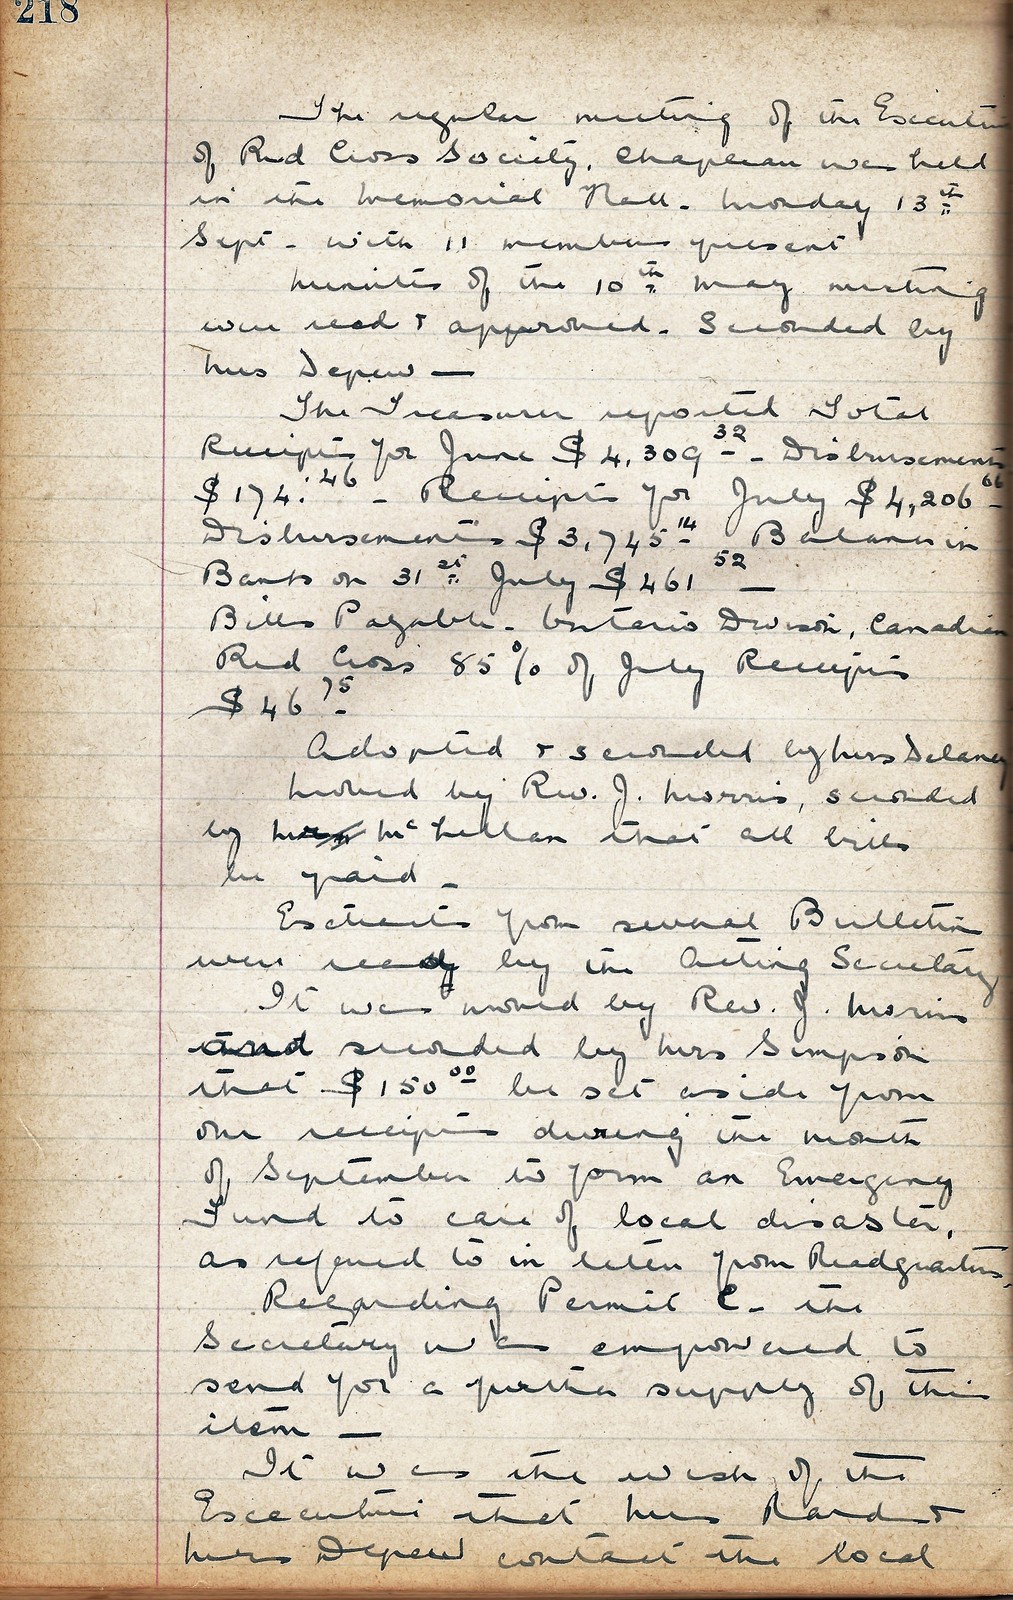 218
The regular meeting of the Executive
of Red Cross Society, Chapleau was held
in the Memorial Hall - Monday 13th
Sept - with 11 members present
Minutes of the 10th May meeting
were read & approved - Seconded by
Mrs Depew —
The Treasurer reported Total
Receipts for June $4,309 32 - Disbursements
$174.46 - Receipts for July $4,206 66
Disbursements $3,745 14 Balance in
Bank on 31st July $461 52 —
Bills Payable - Ontario Division, Canadian
Red Cross 85% of July Receipts
$46 75
Adopted & seconded by Mrs Delaney
Moved by Rev. J. Morris, seconded
by Mc Lellan that all bills
be paid -
Extracts from several Bulletin
were read by the Acting Secretary
It was moved by Rev. J. Morris
and seconded by Mrs Simpson
that $150 00 be set aside from
our receipts during the month
of September to form an Emergency
Fund to care of local disaster,
as refered to in letter from Headquarters.
Regarding Permit C - the
Secretary was empowered to
send for a further supply of this
item —
It was the wish of the
Executive that Mrs &
Mrs Depew contact the local